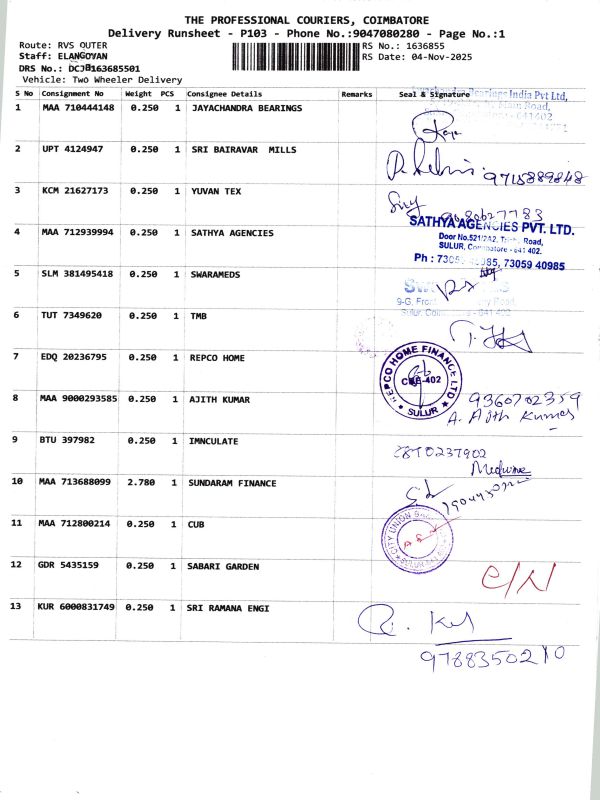 THE PROFESSIONAL COURIERS, COIMBATORE
Delivery Runsheet - P103 - Phone No.:9047080280 - Page No.:1
Route: RVS OUTER RS No.: 1636855
Staff: ELANGOVAN RS Date: 04-Nov-2025
DRS No.: DCJB163685501
Vehicle: Two Wheeler Delivery
S No Consignment No Weight PCS Consignee Details Remarks Seal & Signature
1 MAA 710444148 0.250 1 JAYACHANDRA BEARINGS
Bearings India Pvt Ltd,
Main Road,
641402
2 UPT 4124947 0.250 1 SRI BAIRAVAR MILLS
9715889848
3 KCM 21627173 0.250 1 YUVAN TEX
4 MAA 712939994 0.250 1 SATHYA AGENCIES
SATHYA AGENCIES PVT. LTD.
Door No.521/2A2, Road,
SULUR, Coimbatore - 641 402.
Ph : 73059 40985, 73059 40985
5 SLM 381495418 0.250 1 SWARAMEDS
9-G, Front Road,
Sulur, 641 402
6 TUT 7349620 0.250 1 TMB
7 EDQ 20236795 0.250 1 REPCO HOME
REPCO HOME FINANCE LTD
CBE-402
SULUR
8 MAA 9000293585 0.250 1 AJITH KUMAR
9360702359
A. Ajith Kumar
9 BTU 397982 0.250 1 IMNCULATE
10 MAA 713688099 2.780 1 SUNDARAM FINANCE
11 MAA 712800214 0.250 1 CUB
CITY UNION
12 GDR 5435159 0.250 1 SABARI GARDEN
C/N
13 KUR 6000831749 0.250 1 SRI RAMANA ENGI
9788350210